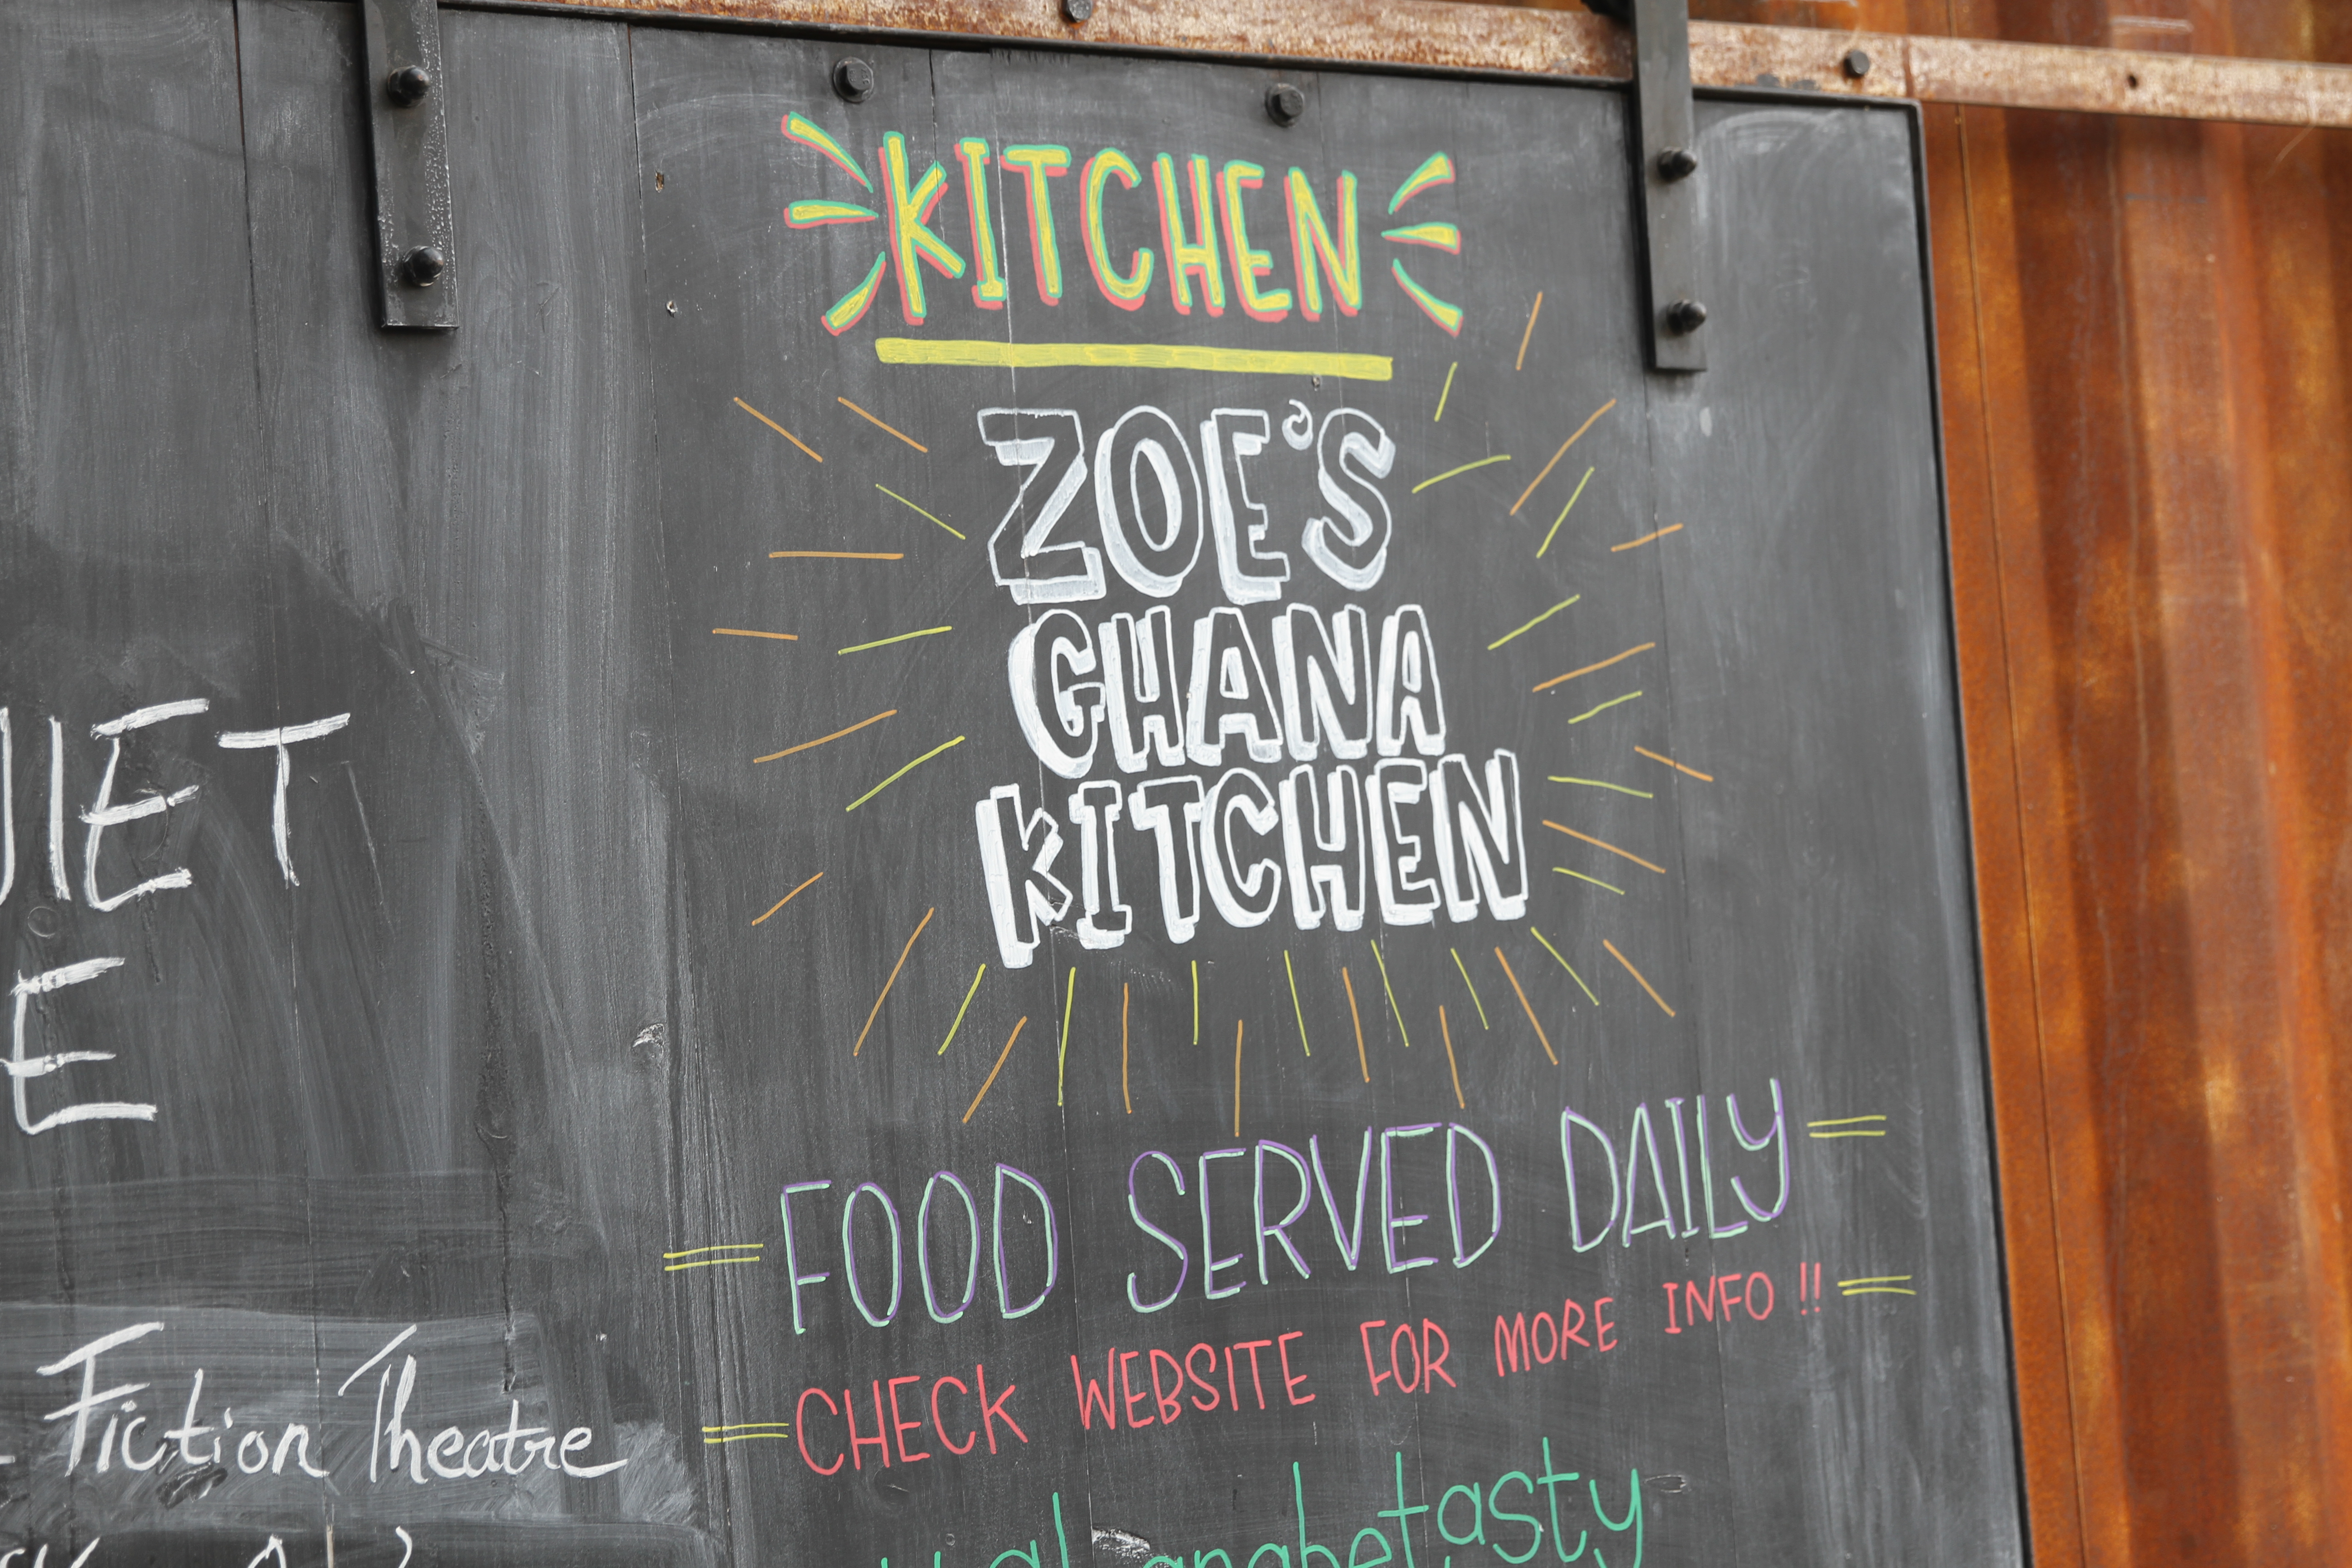 KITCHEN
ZOE'S
GHANA
KITCHEN
FOOD SERVED DAILY
CHECK WEBSITE FOR MORE INFO !!
Fiction Theatre